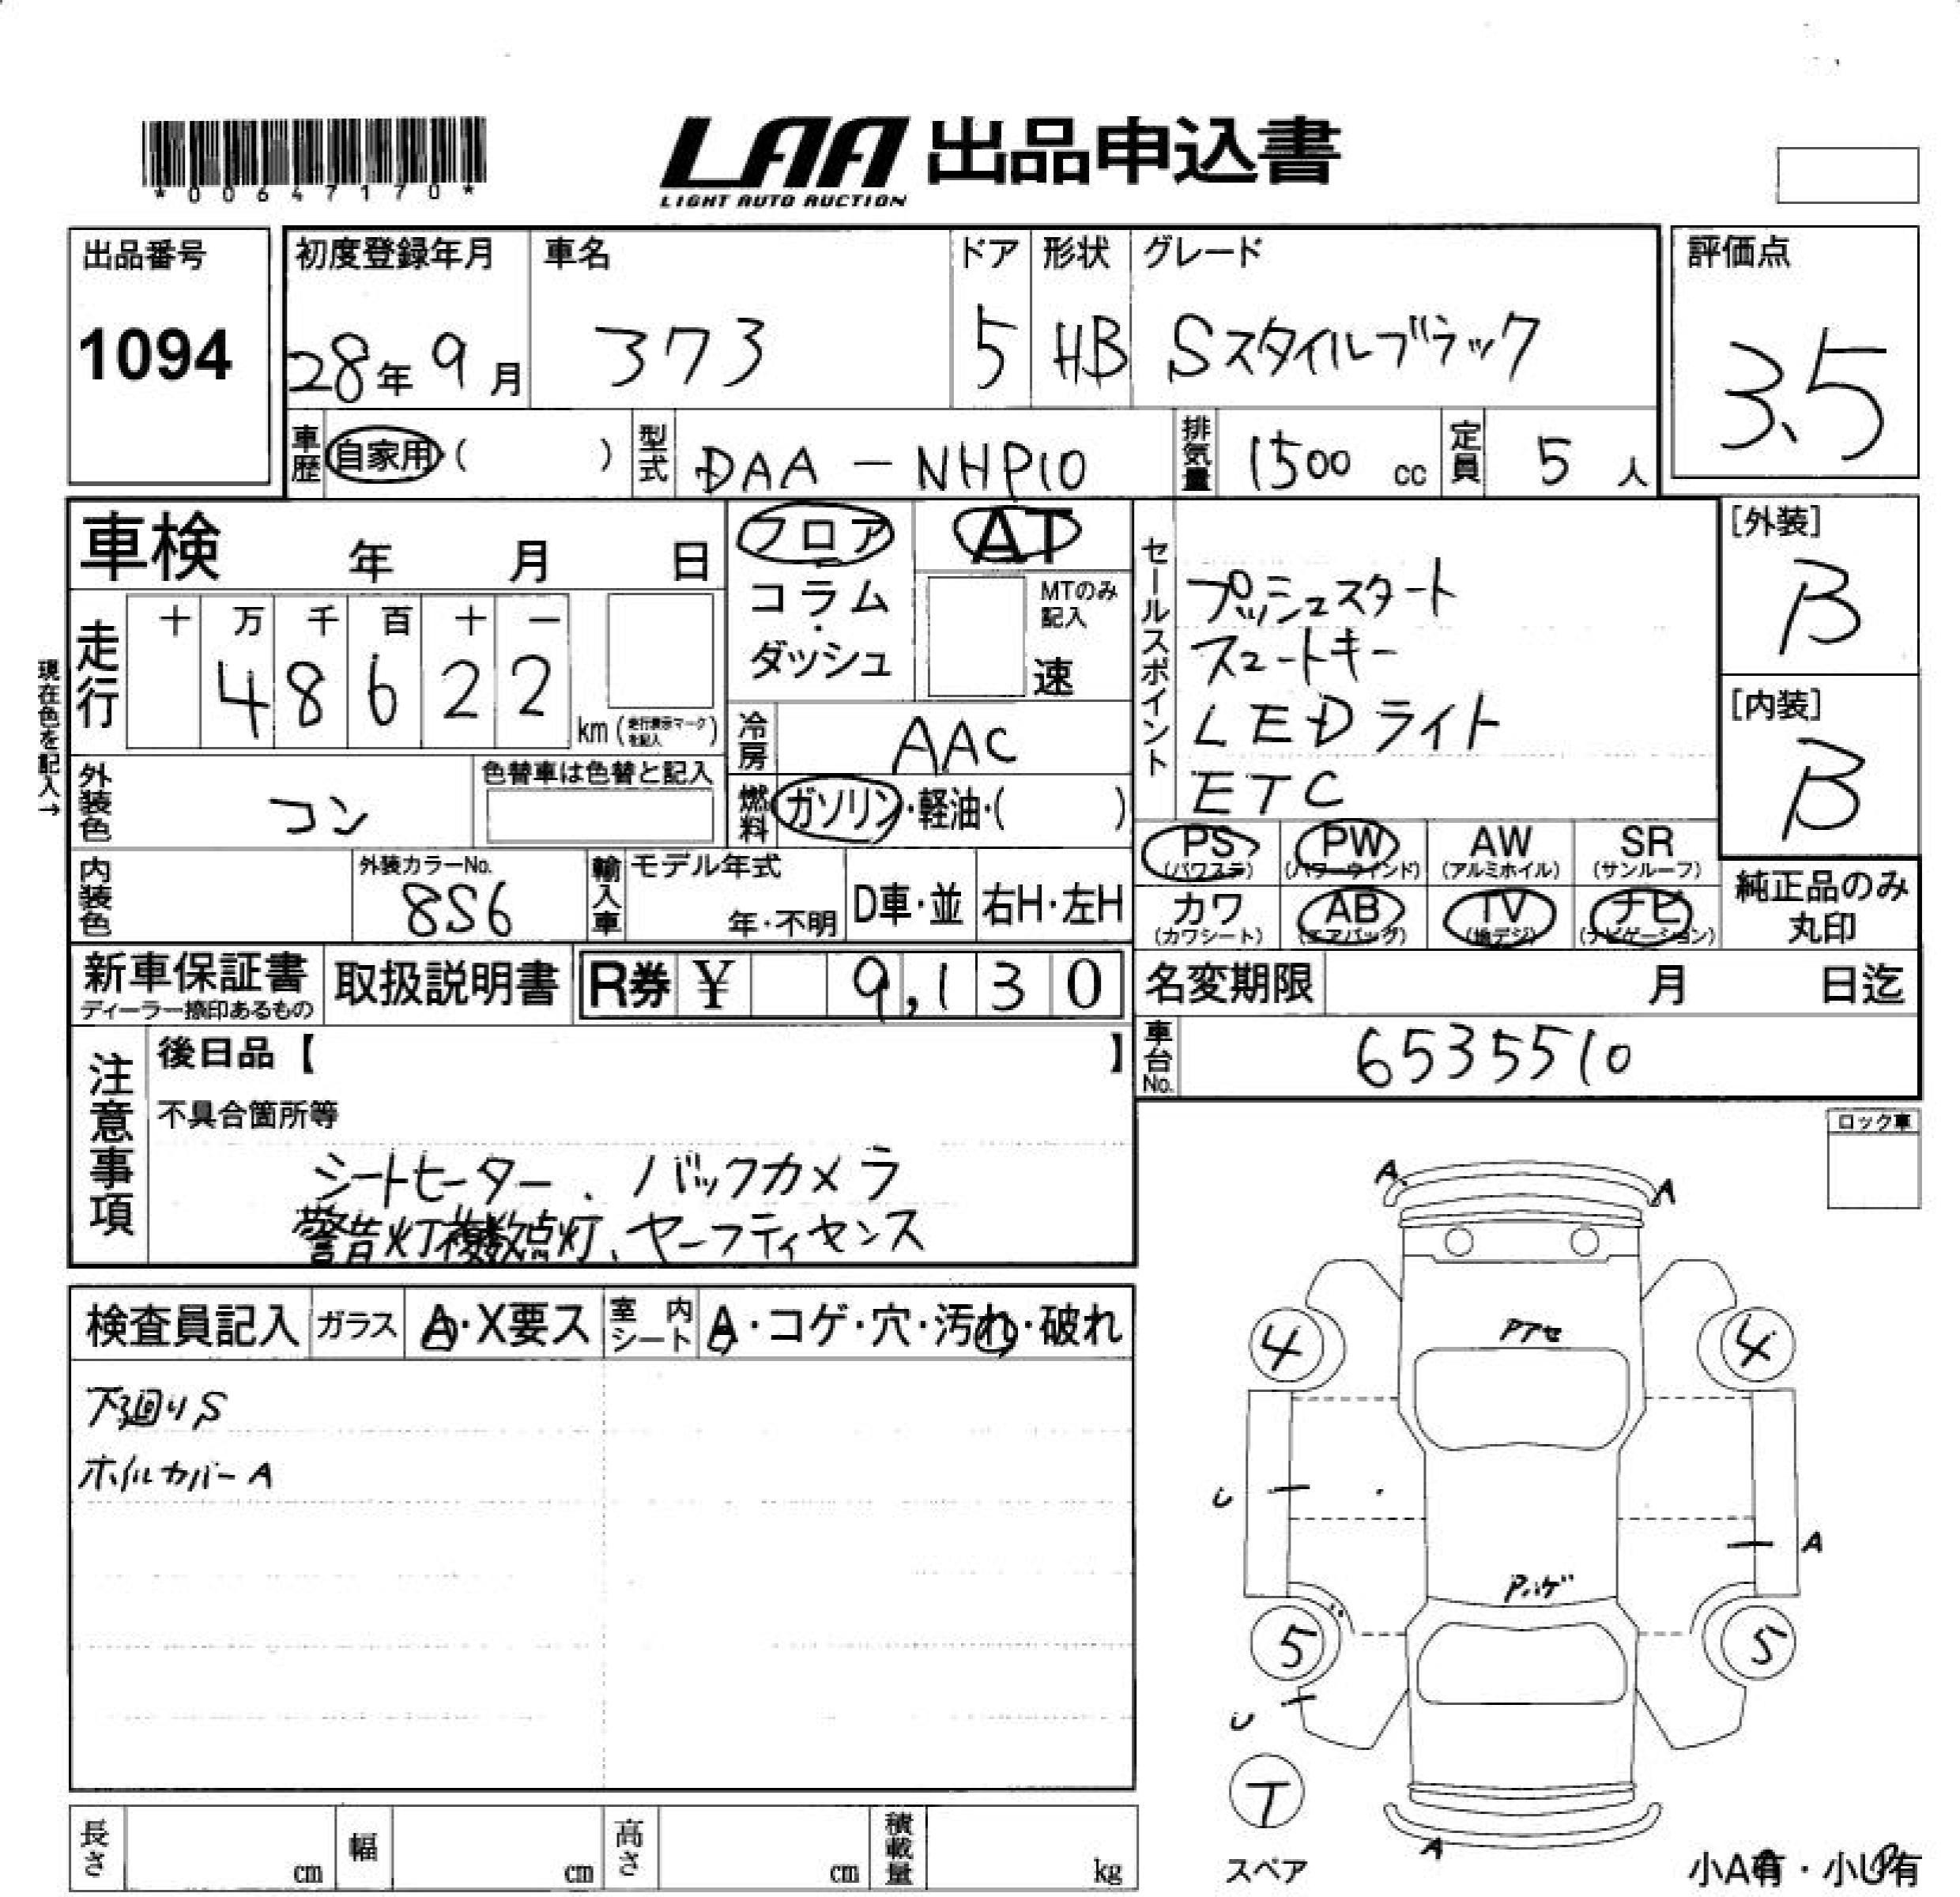 *00647170*
LAA 出品申込書
LIGHT AUTO AUCTION
出品番号
1094
初度登録年月
28年 9月
車名
373
ドア
5
形状
HB
グレード
Sスタイルブラック
評価点
3.5
車歴
自家用 ( )
型式
DAA-NHP10
排気量
1500 cc
定員
5 人
車検 年 月 日
フロア
コラム
・
ダッシュ
AT
MTのみ
記入
速
セールスポイント
プッシュスタート
スュートキー
LEDライト
ETC
[外装]
B
[内装]
B
現在色を記入→
走行
十 万 千 百 十 一
4 8 6 2 2
km (走行表示マークを記入)
冷房
AAC
外装色
コン
色替車は色替と記入
燃料
ガソリン・軽油・( )
PS (パワステ)
PW (パワーウインド)
AW (アルミホイル)
SR (サンルーフ)
カワ (カワシート)
AB (エアバッグ)
TV (地デジ)
ナビ (ナビゲーション)
純正品のみ
丸印
内装色
外装カラーNo.
8S6
輸入車
モデル年式
年・不明
D車・並
右H・左H
新車保証書
ディーラー捺印あるもの
取扱説明書
R券 ¥ 9,130
名変期限 月 日迄
車台No.
6535510
注意事項
後日品【 】
不具合箇所等
シートヒーター、バックカメラ
警告灯複数点灯、セーフティセンス
ロック車
検査員記入
ガラス
A・X要ス
室内シート
A・コゲ・穴・汚れ・破れ
下廻りS
ホイルカバーA
A
A
4
Pアセ
4
U
A
Pハゲ
5
5
U
T
スペア
A
小A有・小U有
長さ cm
幅 cm
高さ cm
積載量 kg